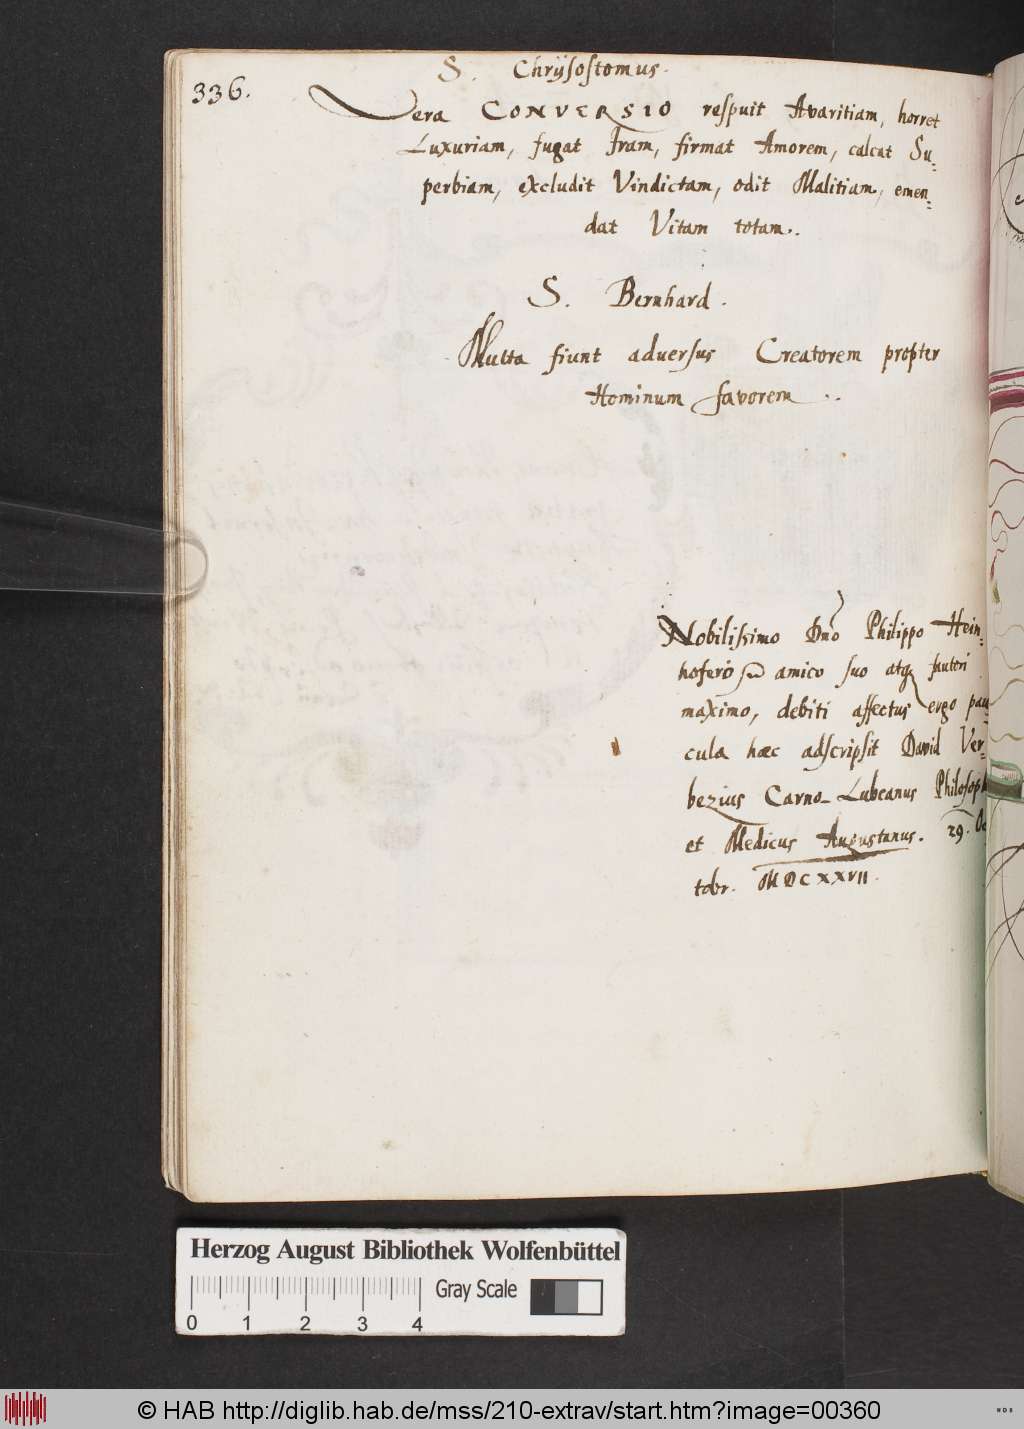 336.
S. Chrÿsostomus.
Vera CONVERSIO respuit Avaritiam, horret
Luxuriam, fugat Iram, firmat Amorem, calcat Su-
perbiam, excludit Vindictam, odit Malitiam, emen-
dat Vitam totam.
S. Bernhard.
Multa fiunt adversus Creatorem propter
Hominum favorem.
Nobilissimo Dno Philippo Hein-
hofero amico suo atq fautori
maximo, debiti affectus ergo pau-
cula hæc adscripsit David Ver-
bezius Carno-Lubeanus Philosoph
et Medicus Augustanus. 29. Oc
tobr. MDCXXVII.
Herzog August Bibliothek Wolfenbüttel
Gray Scale
0 1 2 3 4
© HAB http://diglib.hab.de/mss/210-extrav/start.htm?image=00360